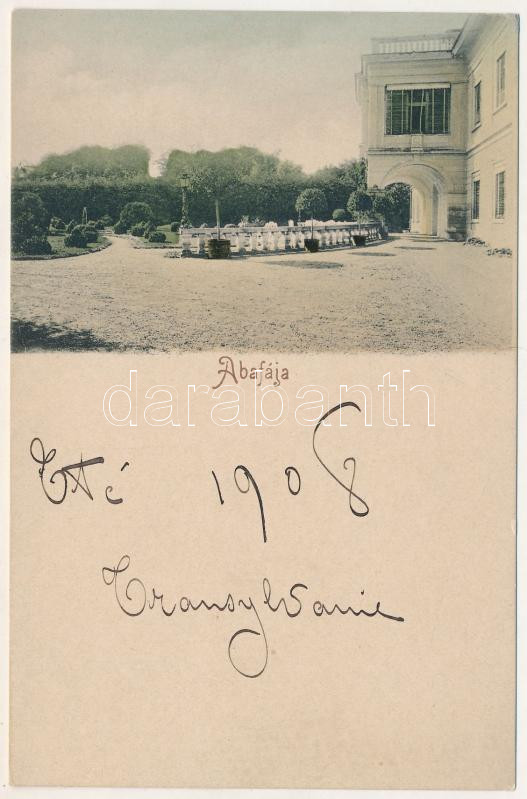 Abafája
darabanth
Eté 1908
Transylvanie